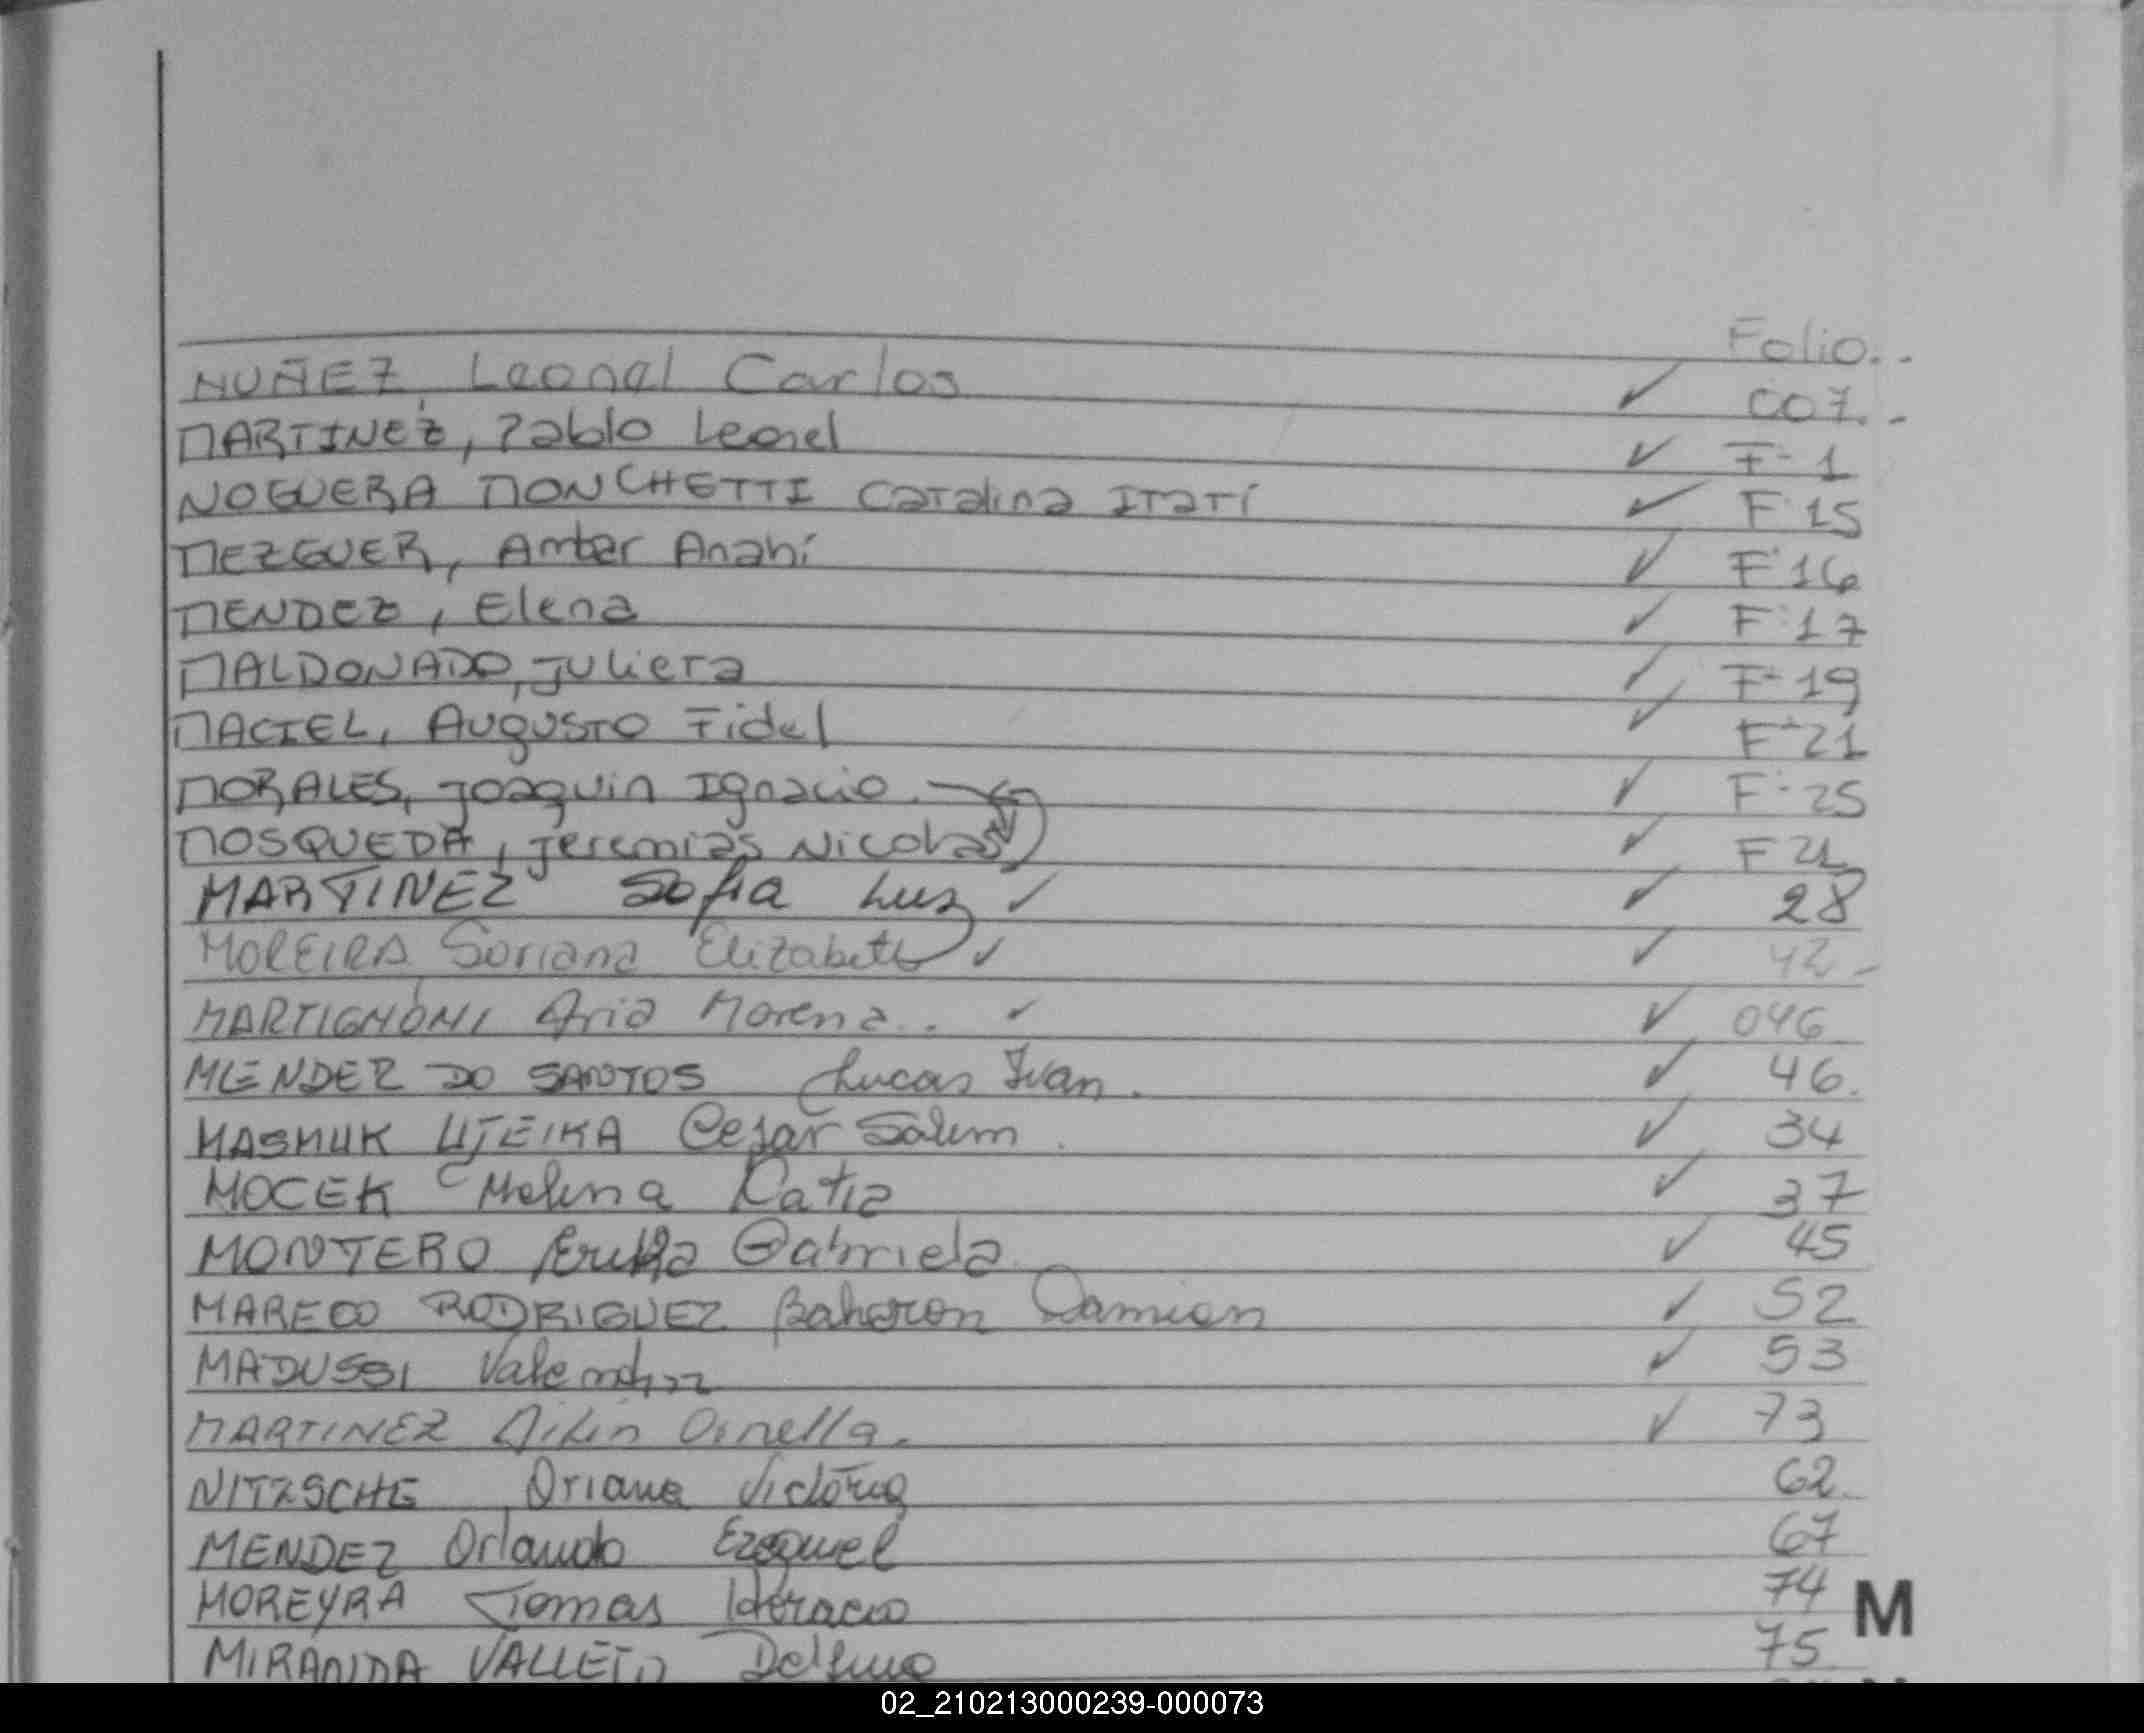 Folio..
NUÑEZ, Leonel Carlos ✓ 007.-
MARTINEZ, Pablo Leonel ✓ F-1
NOGUERA MONCHETTI Catalina Itatí ✓ F.15
MEZGUER, Amber Anahí ✓ F.16
MENDEZ, Elena ✓ F.17
MALDONADO, Julieta ✓ F-19
MACIEL, Augusto Fidel ✓ F-21
MORALES, Joaquin Ignacio. ✓ F-25
MOSQUEDA, Jeremias Nicolas ✓ F
MARTINEZ Sofia Luz ✓ ✓ 28
MOREIRA Soriana Elizabeth ✓ ✓ 42-
MARTIGNONI Aria Morena.. ✓ ✓ 046
MENDEZ DO SANTOS Lucas Ivan. ✓ 46.
MASMUK UJEIKA Cesar Salem. ✓ 34
MOCEK Melina Katia ✓ 37
MONTERO Erika Gabriela ✓ 45
MARECO RODRIGUEZ Damian ✓ 52
MADUSSI Valentina ✓ 53
MARTINEZ Ailin Ornella. ✓ 73
NITZSCHE Oriana Victoria 62.
MENDEZ Orlando Ezequiel 67
MOREYRA Tomas 74
MIRANDA VALLEJO 75
M
02_210213000239-000073